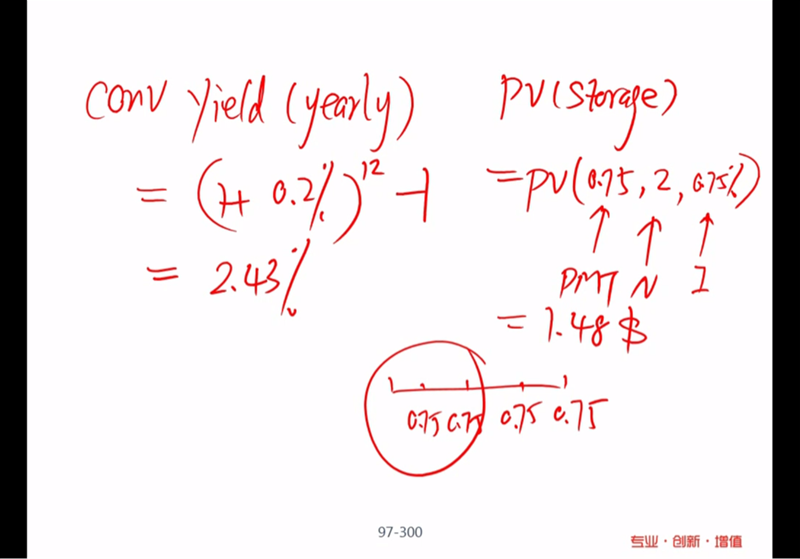 Conv Yield (yearly)
= (1+ 0.2%)^12 -1
= 2.43%
PV(Storage)
= PV(0.75, 2, 0.75%)
↑ ↑ ↑
PMT N I
= 1.48 $
0.75 0.75 0.75 0.75
97-300
专业·创新·增值